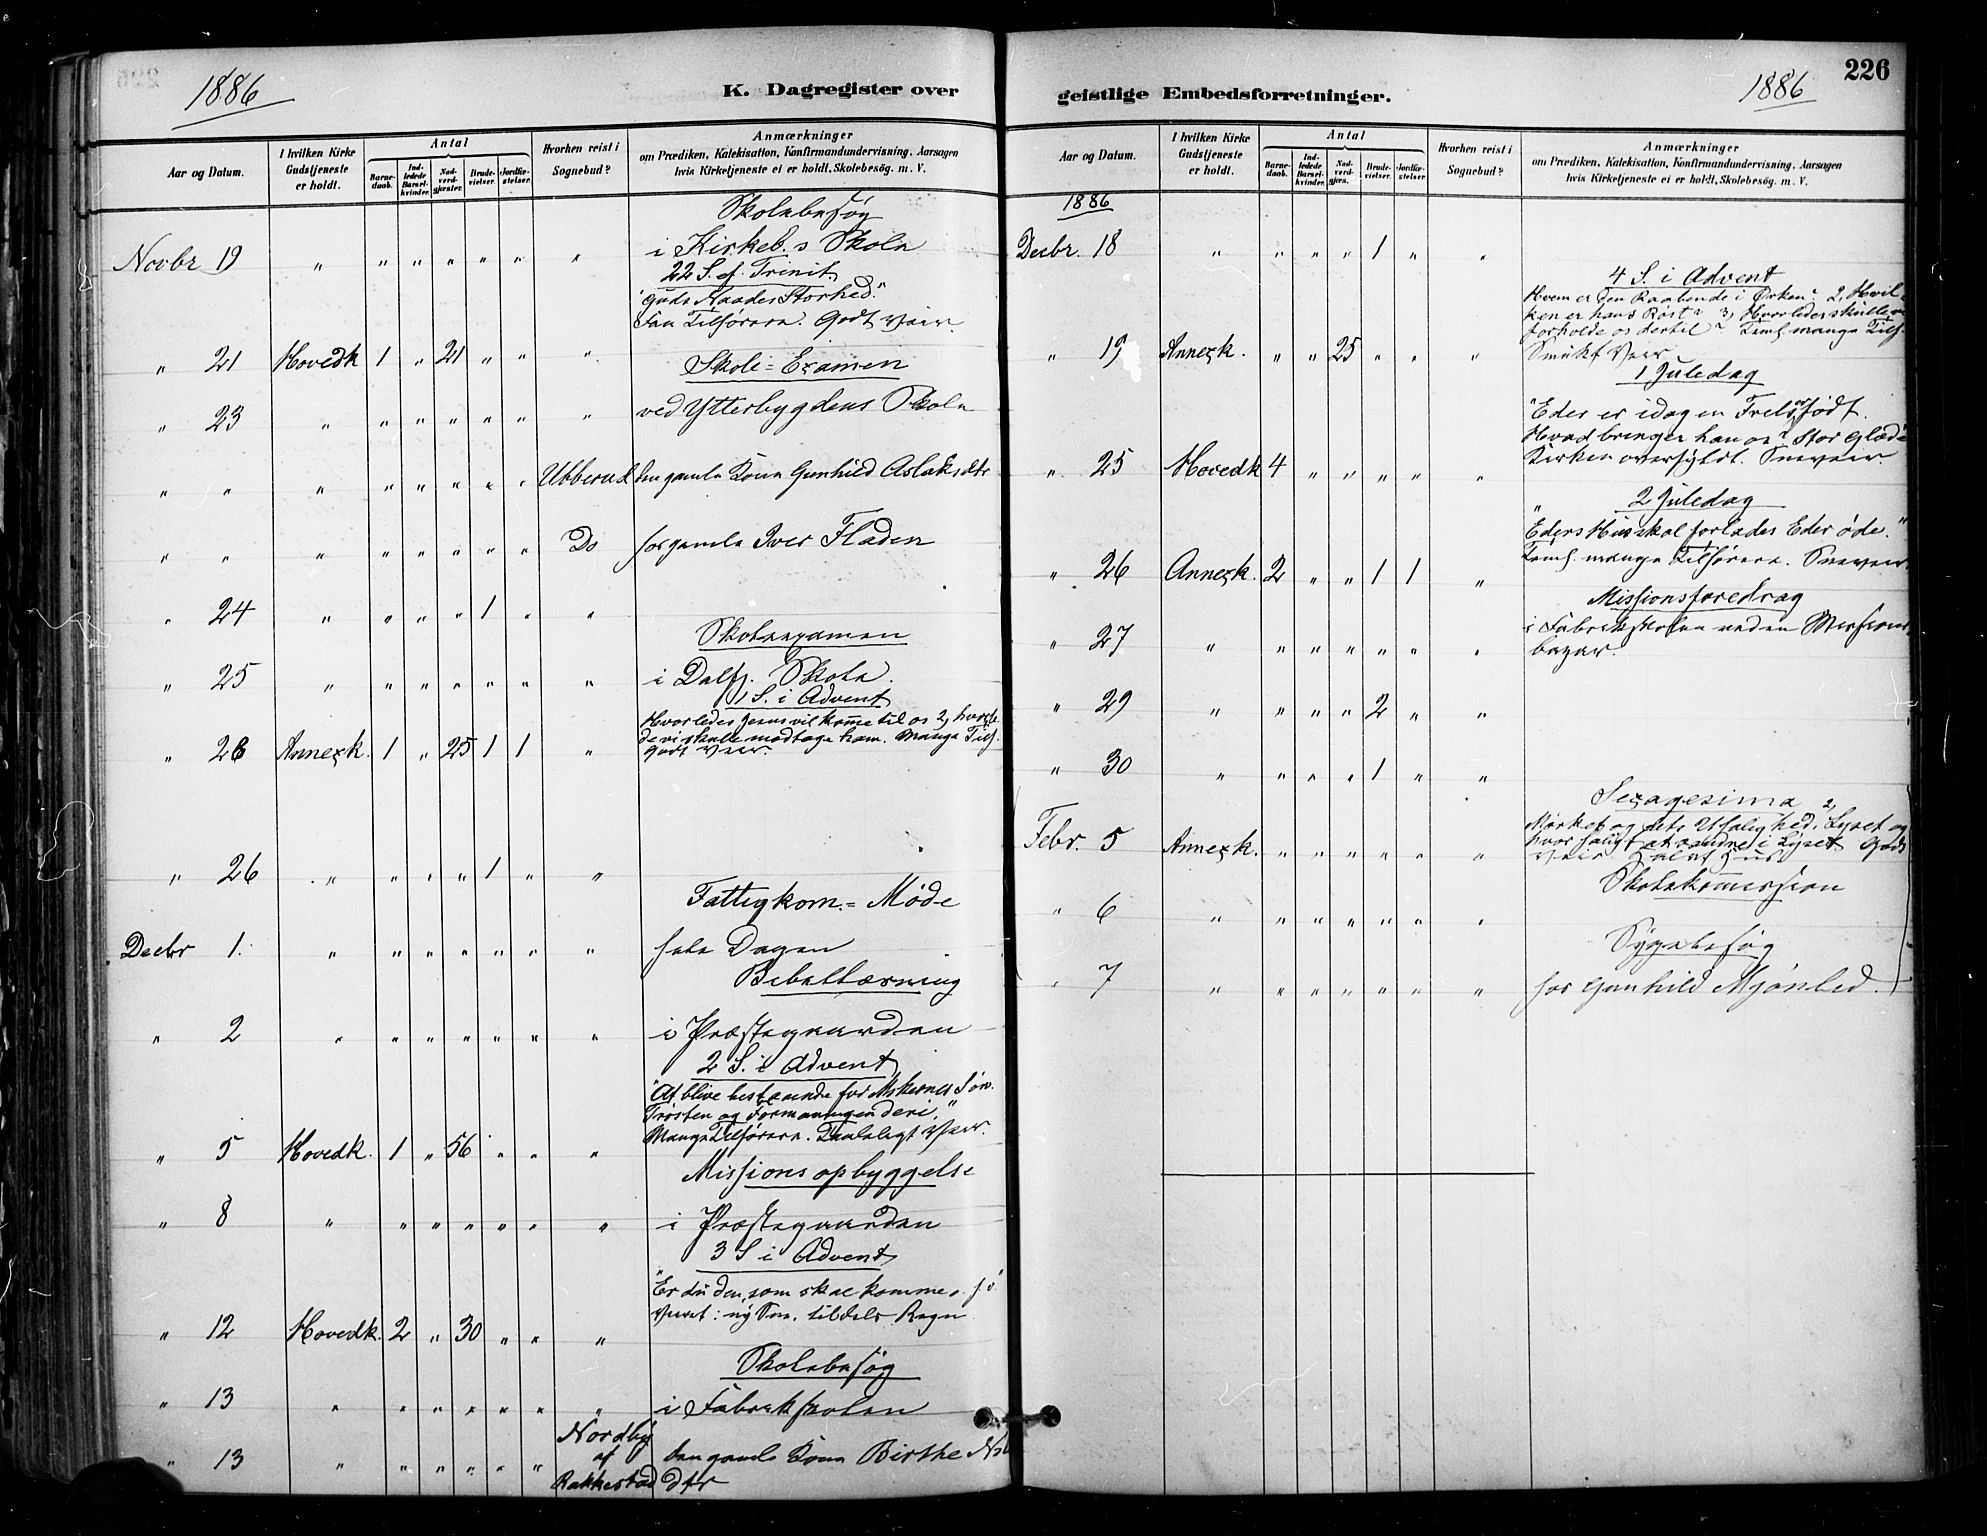 1886
K. Dagregister over
Aar og Datum.
I hvilken Kirke Gudstjeneste er holdt.
Antal
Barnedaab.
Indledede Barselkvinder.
Nadverdgjæster.
Brudevielser.
Jordfæstelser.
Hvorhen reist i Sognebud?
Anmærkninger
om Prædiken, Katekisation, Konfirmandundervisning, Aarsagen
hvis Kirketjeneste ei er holdt, Skolebesög. m. V.
Skolebesøg
Novbr 19 " " " " " " " i Kirkeb.s Skole
22 S. ef. Trinit.
"Guds Naades Storhed."
Faa Tilhørere. Godt Veir.
" 21 Hovedk 1 " 21 " " "
Skole=Examen
" 23 " " " " " " " ved Ytterbygdens Skole
" " " " " " " " Ubberud den gamle Kone Gunhild Aslaksdtr
" " " " " " " " Do for gamle Iver Fladen
" 24 " " " " 1 " "
Skoleexamen
" 25 " " " " " " " i Dalfj. Skole.
1 S. i Advent
Hvorledes Jesus vil komme til os 2, hvorle
de vi skulle modtage ham. Mange Tilh.
Godt Veir.
" 28 Annexk. 1 " 25 1 1 "
" 26 " " " " 1 " "
Fattigkom.= Møde
Decbr 1. " " " " " " " hele Dagen
Bibellæsning
" 2 " " " " " " " i Præstegaarden
2 S. i Advent
"At blive bestaaende for Mskernes Søn.
Trøsten og Formaningen deri."
Mange Tilhørere. Taaleligt Veir.
" 5 Hovedk. 1 " 56 " " "
Missionsopbyggelse
" 8 " " " " " " " i Præstegaarden
3 S i Advent
"Er du den, som skal komme o. s. v."
Veiret: ny Sne, tildels Regn
" 12 Hovedk. 2 " 30 " " "
Skolebesøg
" 13 " " " " " " " i Fabrikskolen
" 13 " " " " " " Nordby af Rakkestad den gamle Kone Birthe
dtr
226
1886
geistlige Embedsforretninger.
Aar og Datum.
I hvilken Kirke Gudstjeneste er holdt.
Antal
Barnedaab.
Indledede Barselkvinder.
Nadverdgjæs.
Brudevielser.
Jordfæstelser
Hvorhen reist i Sognebud?
Anmærkninger
om Prædiken, Katekisation, Konfirmandundervisning, Aarsagen
hvis Kirketjeneste ei er holdt, Skolebesög m. V.
1886
Decbr. 18 " " " " 1 " "
4 S. i Advent
Hvem er den Raabende i Ørken? 2, Hvil
ken er hans Røst? 3, Hvorledes skulle vi
forholde os dertil? Teml. mange Tilh.
Smukt Veir
" 19 Annexk. " " 25 " " "
1 Juledag
"Eder er idag en Frelser født.
Hvad bringer han os? Stor Glæde
Kirken overfyldt. Sneveir.
" 25 Hovedk 4 " " " " "
2 Juledag
"Eders Hus skal forlades Eder øde."
Teml. mange Tilhørere. Sneveir.
" 26 Annexk. 2 " " 1 1 "
Missionsforedrag
" 27 " " " " " " " i Fabrikskolen ved en Missions
bazar.
" 29 " " " " 2 " "
" 30 " " " " 1 " "
Sexagesima
Mørket og dets Usalighed, 2, Lyset og
hvor saligt at vandre i Lyset. Godt
Veir. Halvt Hus
Febr. 5 Annexk. " " " " " "
Skolekommission
" 6 " " " " " " "
Sygebesøg
" 7 " " " " " " " hos Gunhild Mjønlid.